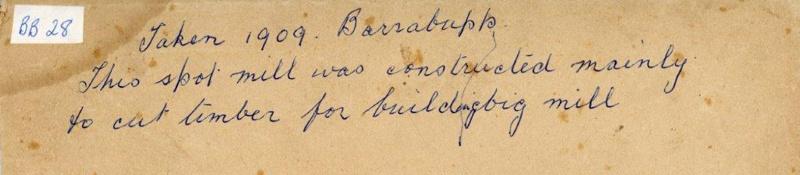 BB 28
Taken 1909. Barrabupp.
This spot mill was constructed mainly
to cut timber for building big mill